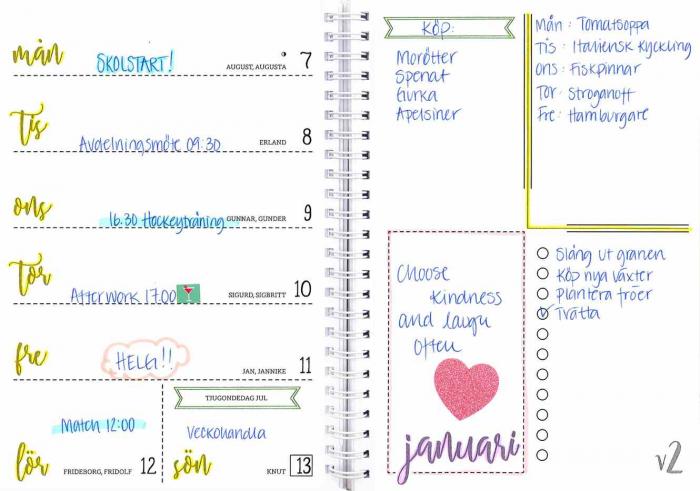 mån
SKOLSTART!
AUGUST, AUGUSTA
7
Tis
Avdelningsmöte 09:30
ERLAND
8
ons
16.30 Hockeyträning
GUNNAR, GUNDER
9
Tor
Afterwork 17.00
SIGURD, SIGBRITT
10
fre
HELG!!
JAN, JANNIKE
11
Match 12:00
lör
FRIDEBORG, FRIDOLF
12
TJUGONDEDAG JUL
Veckohandla
sön
KNUT
13
KÖP:
Morötter
Spenat
Gurka
Apelsiner
Mån: Tomatsoppa
Tis: Italiensk Kyckling
Ons: Fiskpinnar
Tor: Stroganoff
Fre: Hamburgare
Choose
kindness
and laugh
often
januari
Släng ut granen
Köp nya växter
Plantera fröer
Tvätta
v2